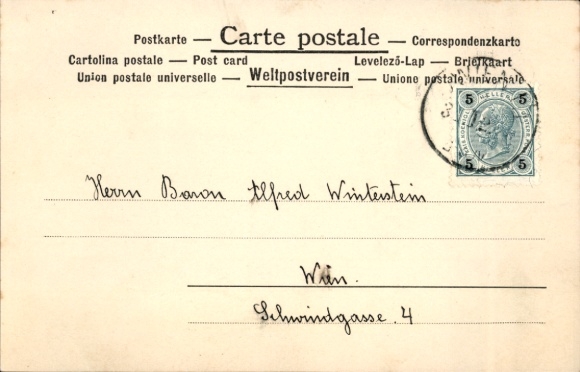 Postkarte — Carte postale — Correspondenzkarto
Cartolina postale — Post card Levelező-Lap — Briefkaart
Union postale universelle — Weltpostverein — Unione postale universale
5 HELLER 5
5 5
Herrn Baron Alfred Winterstein
Wien.
Schwindgasse. 4